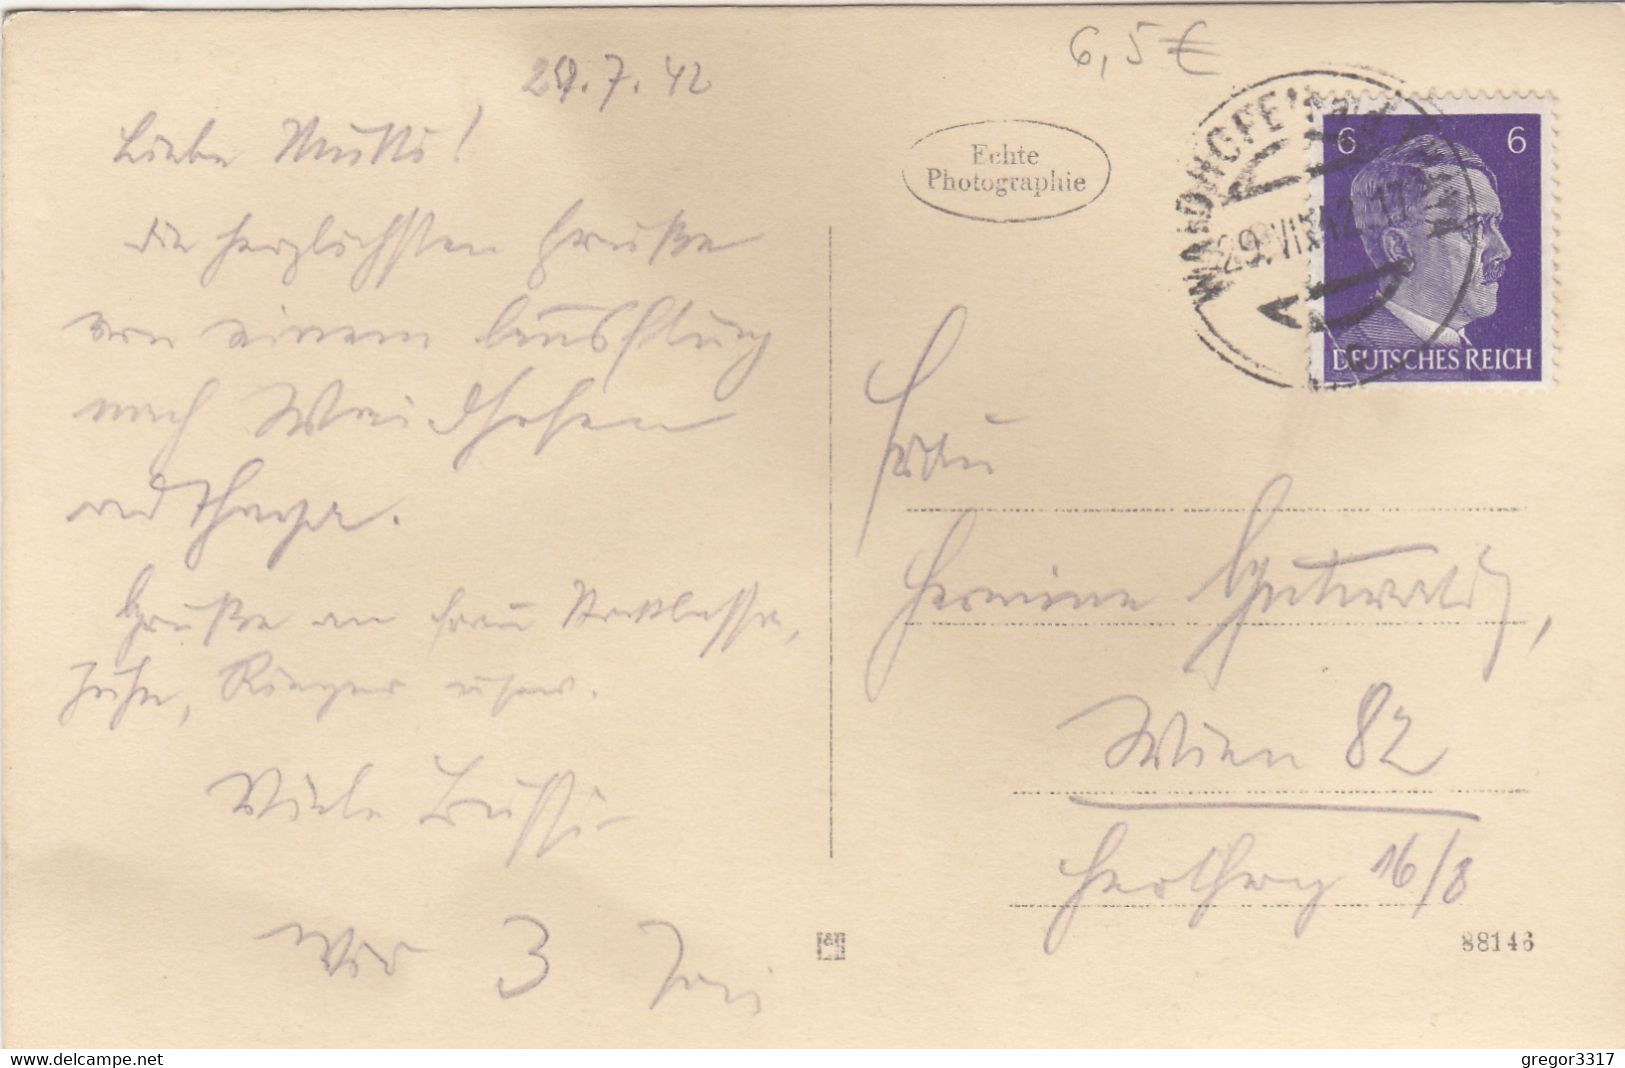 29.7.42
6,5€
Liebe Mutti!
die herzlichsten Grüße
von einem Ausflug
nach Waidhofen
a d Thaya.
Grüße an Frau
Rieger usw.
Viele Bussi
3
Echte
Photographie
WAIDHOFEN
29.VII.42.17
6 6
DEUTSCHES REICH
Frau
Hermine Gutwald,
Wien 82
16/8
88146
www.delcampe.net
gregor3317